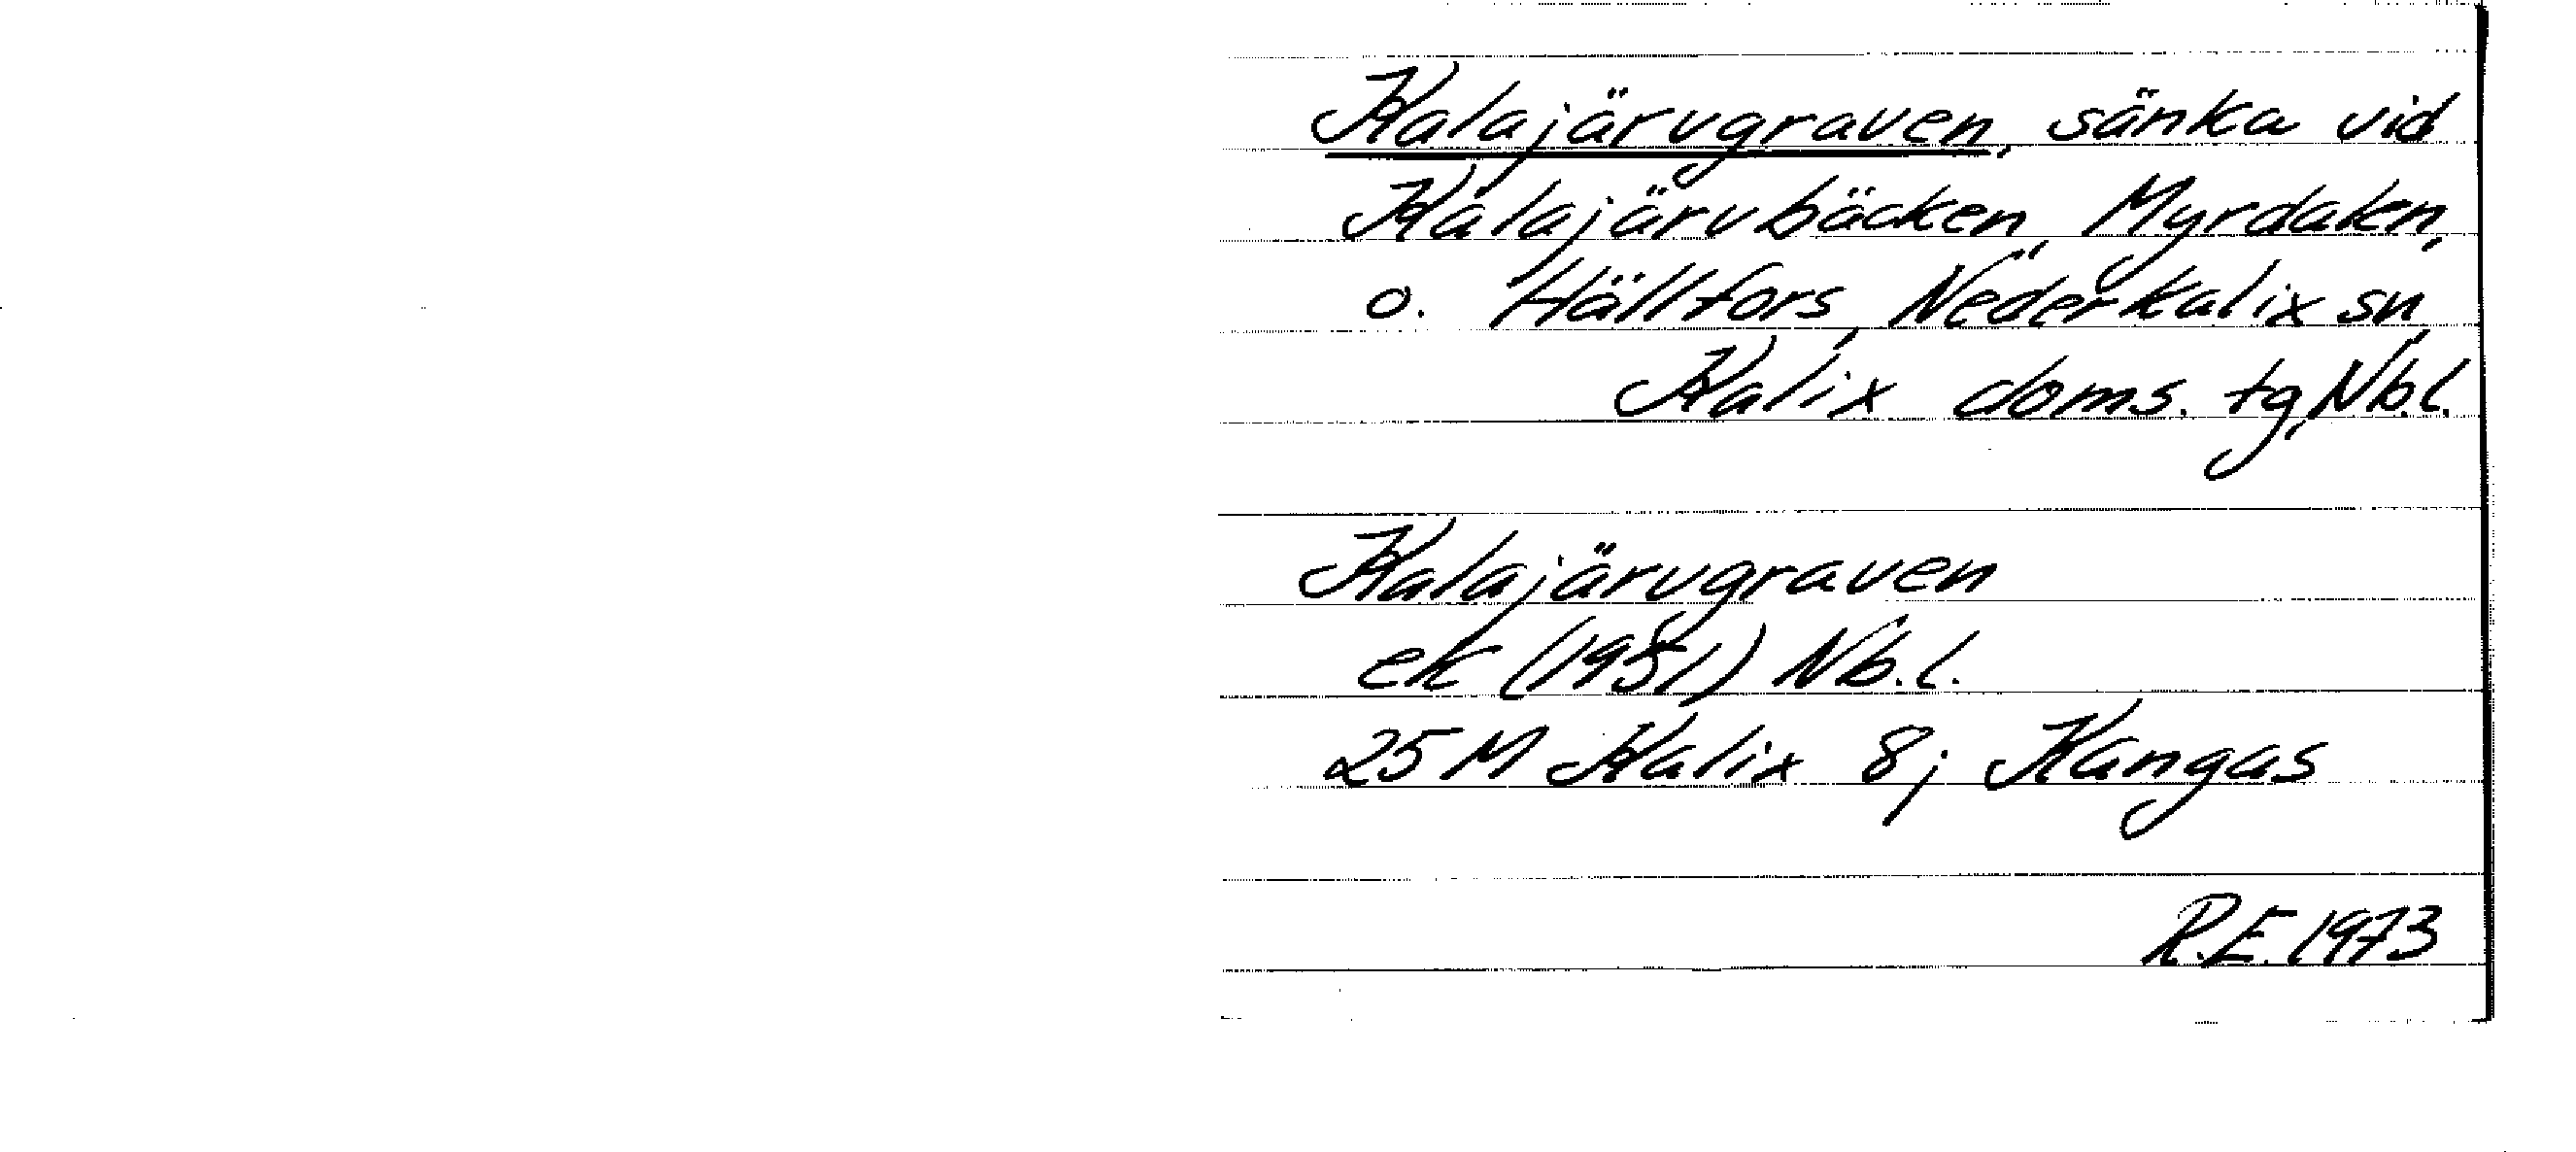 Kalajärvgraven, sänka vid
Kalajärvbäcken, Myrdalen,
o. Hällfors, Nederkalix sn,
Kalix doms. tg, Nb.l.
Kalajärvgraven
ek (1951) Nb.l.
25 M Kalix 8j Kangas
R.E. 1973